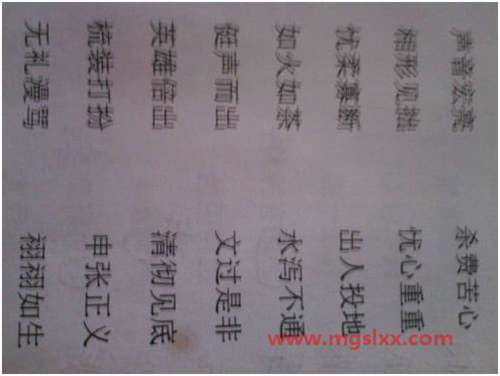 声音宏亮 杀费苦心
相形见拙 忧心重重
忧柔寡断 出人投地
如火如茶 水泻不通
挺声而出 文过是非
英雄倍出 清彻见底
梳装打扮 申张正义
无礼漫骂 栩栩如生
www.mgslxx.com